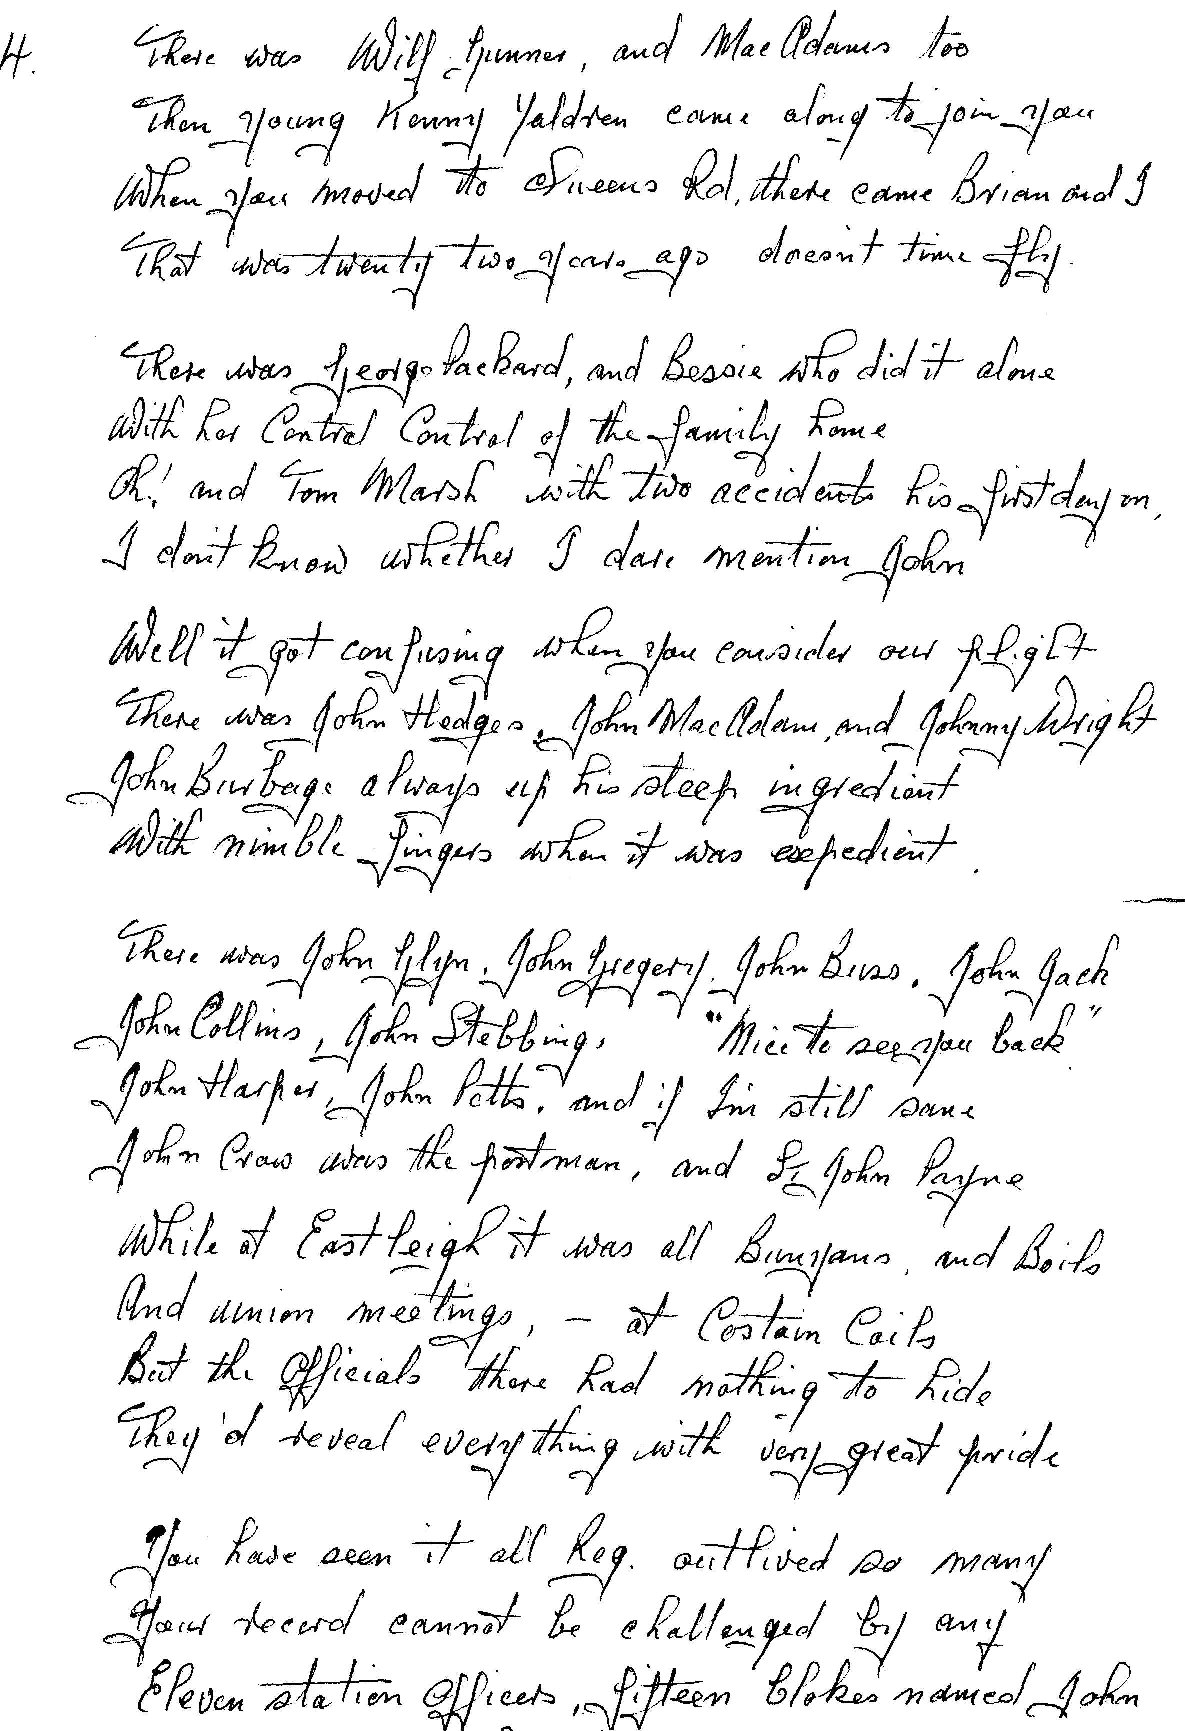 4.
There was Wilf Gunner, and MacAdams too
Then young Kenny Yaldren came along to join you
When you moved to Queens Rd, there came Brian and I
That was twenty two years ago doesn't time fly.
There was George Packard, and Bessie who did it alone
With her Central Control of the family home
Oh! and Tom Marsh with two accidents his first day on,
I don't know whether I dare mention John
Well it got confusing when you consider our plight
There was John Hedges, John MacAdam, and Johnny Wright
John Burbage always up his steep ingredient
With nimble fingers when it was expedient.
There was John Glyn, John Gregery, John Buss, John Jack
John Collins, John Stebbing, "Nice to see you back"
John Harper, John Potts, and if I'm still sane
John Crow was the postman, and St John Payne
While at Eastleigh it was all Bunyans, and Boils
And union meetings, - at Costain Coils
But the Officials there had nothing to hide
They'd reveal everything with very great pride
You have seen it all Reg. outlived so many
Your record cannot be challenged by any
Eleven station Officers, fifteen blokes named John